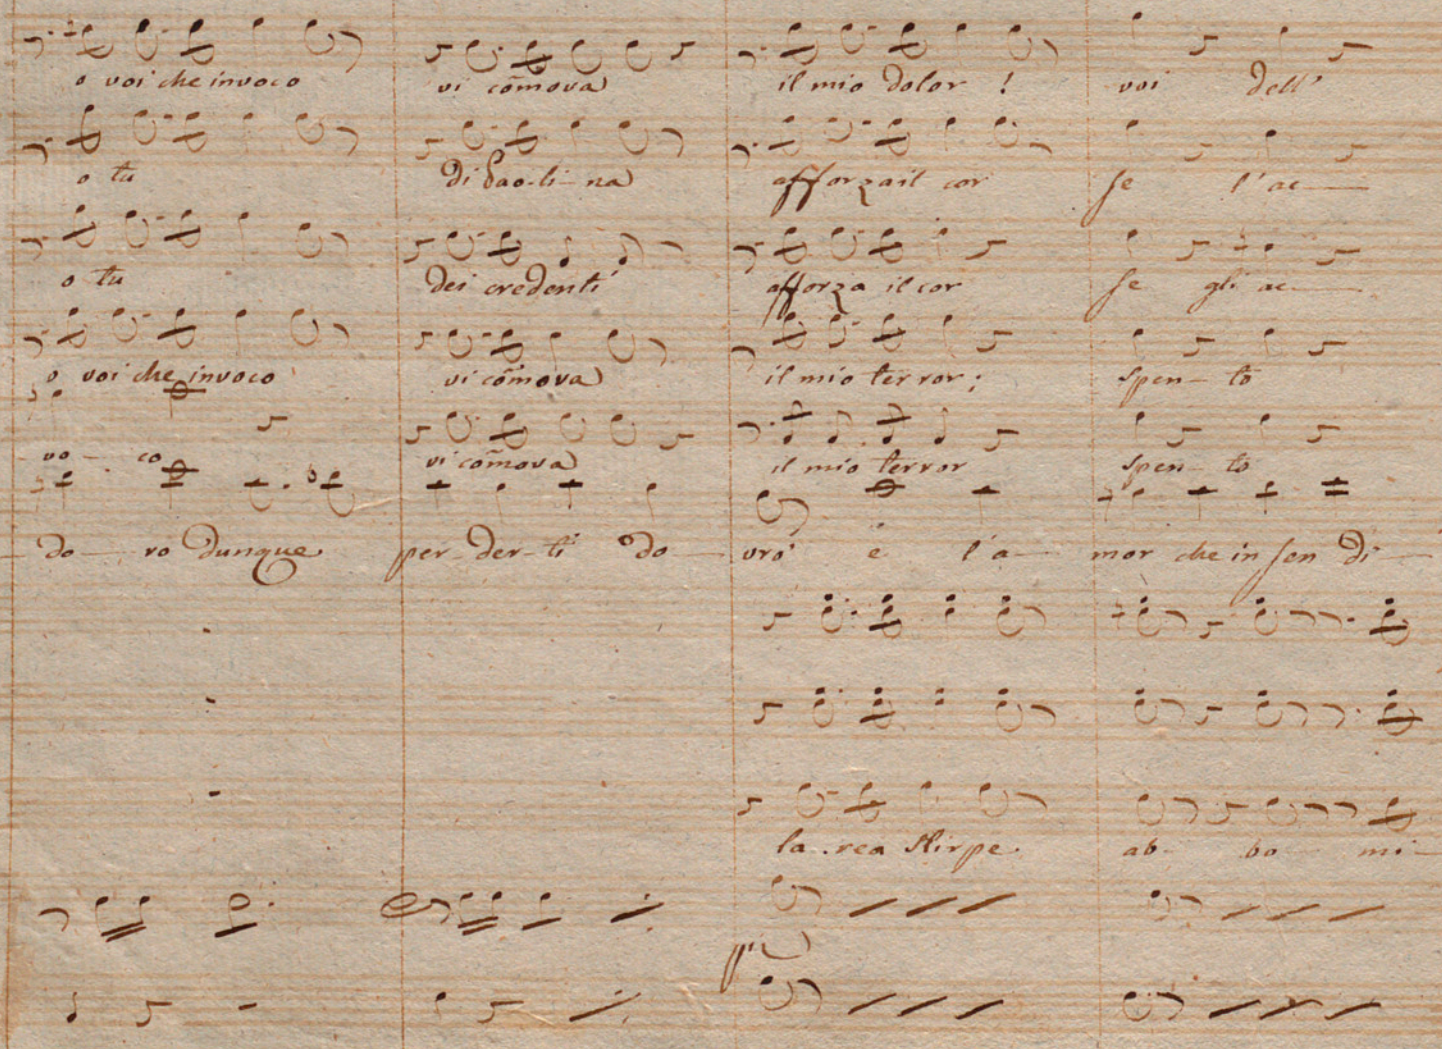 o voi che invoco vi com̃ova il mio dolor ! voi dell'
o tu di Pao-li-na afforza il cor se l'ac
o tu dei credenti afforza il cor se gli ac
o voi che invoco vi com̃ova il mio terror; spen-to
vo-co vi com̃ova il mio terror spen-to
do ro dunque per-der-ti do vrò e l'a mor che in sen di
la rea stirpe ab bo mi